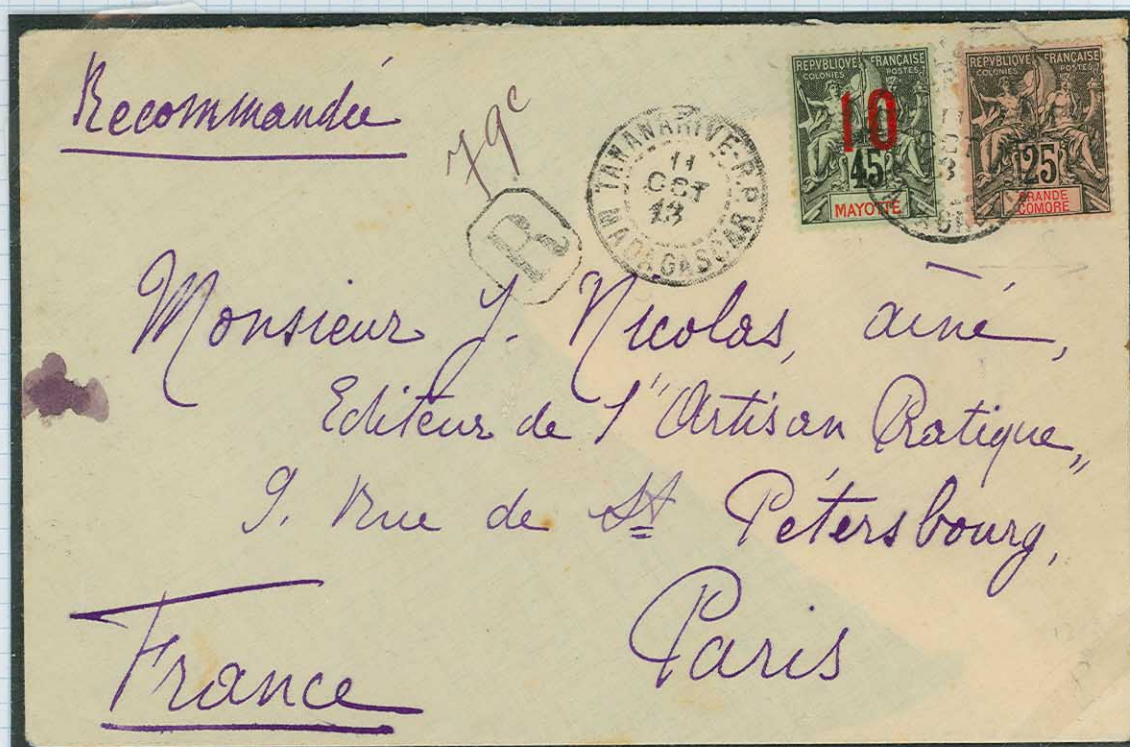 Recommandée
79c
R
TANANARIVE-R.P.
11
OCT
13
MADAGASCAR
REPVBLIQVE FRANÇAISE
COLONIES POSTES
10
45
MAYOTTE
REPVBLIQVE FRANÇAISE
COLONIES POSTES
25
GRANDE
COMORE
Monsieur J. Nicolas, aîné,
Editeur de l'"Artisan Pratique„
9. Rue de St Pétersbourg,
Paris
France